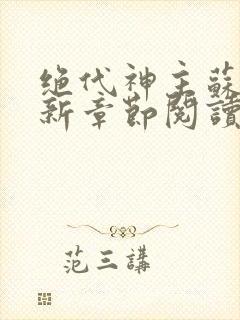 绝代神主蘇
新章節閱讀
范三講